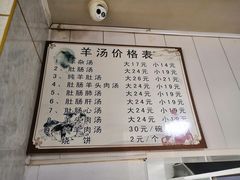 羊汤价格表
1、杂汤 大17元 小14元
2、肚肠汤 大24元 小19元
3、纯羊肚汤 大26元 小21元
4、肚肠羊头肉汤 大24元 小19元
5、肚肠肺汤 大24元 小19元
6、肚肠肝汤 大24元 小19元
7、肚肠心汤 大24元 小19元
肉汤 大24元 小19元
肉汤 30元/碗
烧饼 2元/个